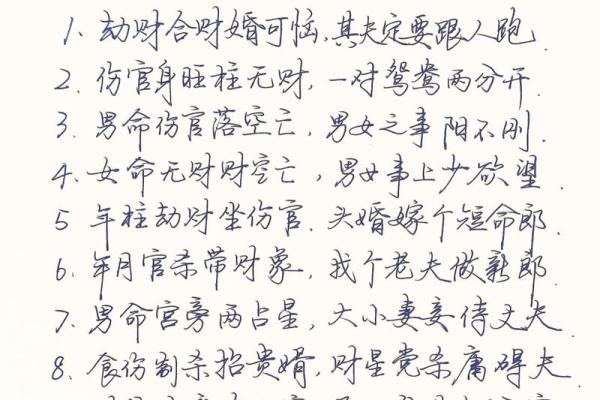 1、劫财合财婚可恼,其夫定要跟人跑
2、伤官身旺柱无财,一对鸳鸯两分开.
3、男命伤官落空亡,男女之事阳不刚.
4、女命无财财空亡,男女事上少欲望.
5 年柱劫财坐伤官.头婚嫁个短命郎.
6、年月官杀带财象,找个老夫做新郎.
7、男命宫旁两占星,大小妻妾侍丈夫.
8、食伤制杀招贵婿,财星党杀庸碍夫.